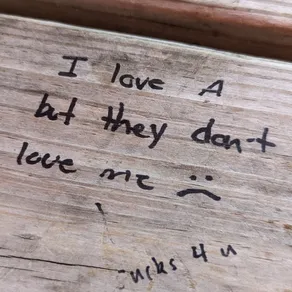 I love A
but they don't
love me :(
sucks 4 u